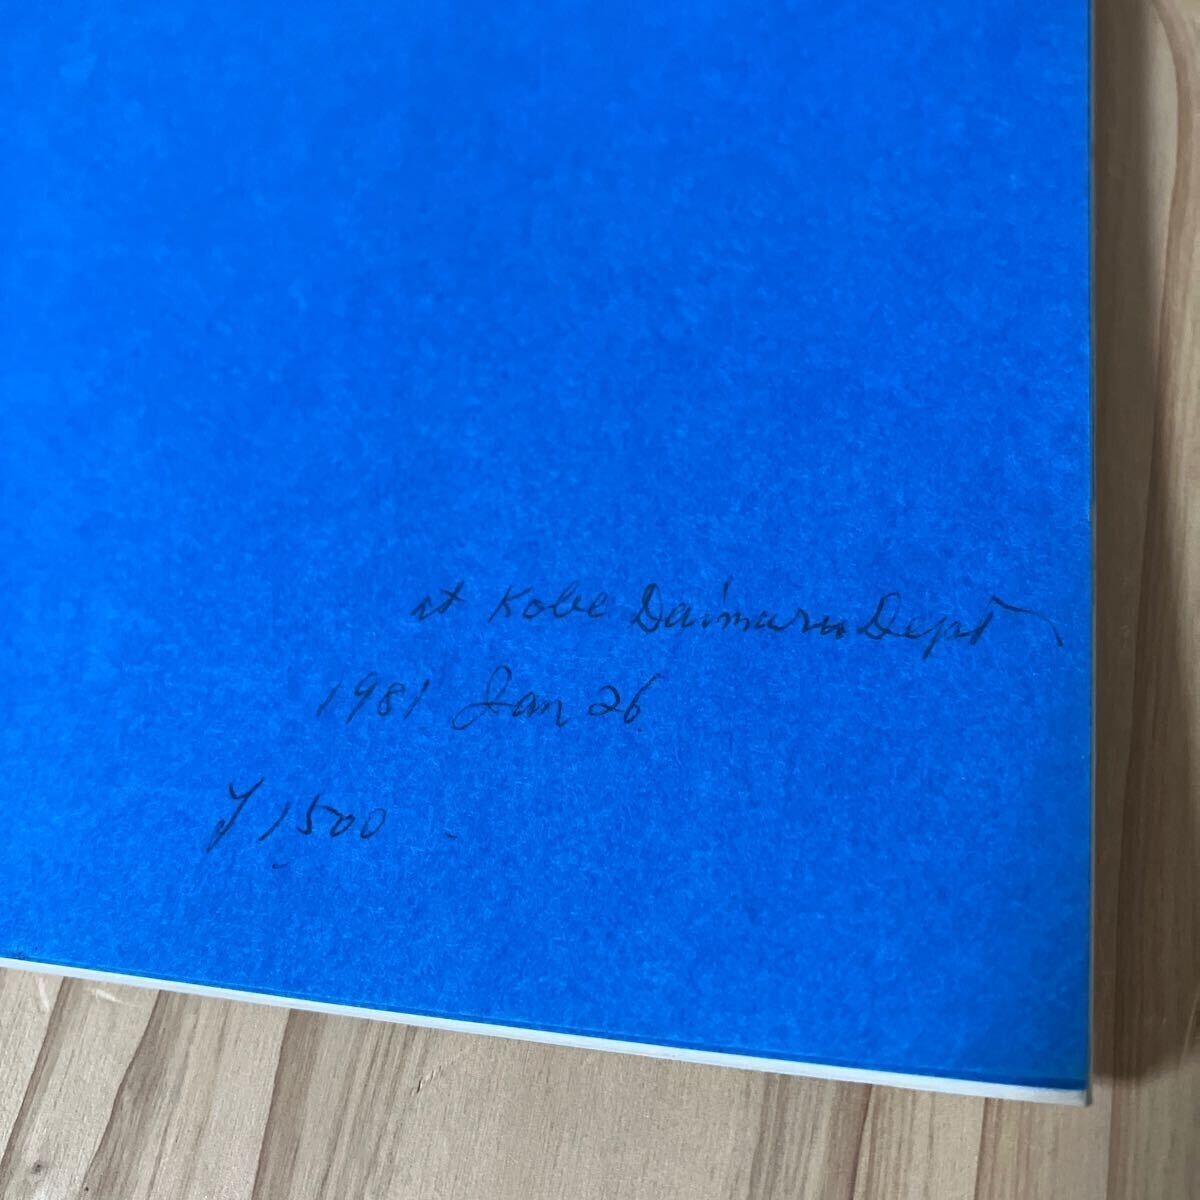 at Kobe Daimaru Dept
1981 Jan 26
¥1500-